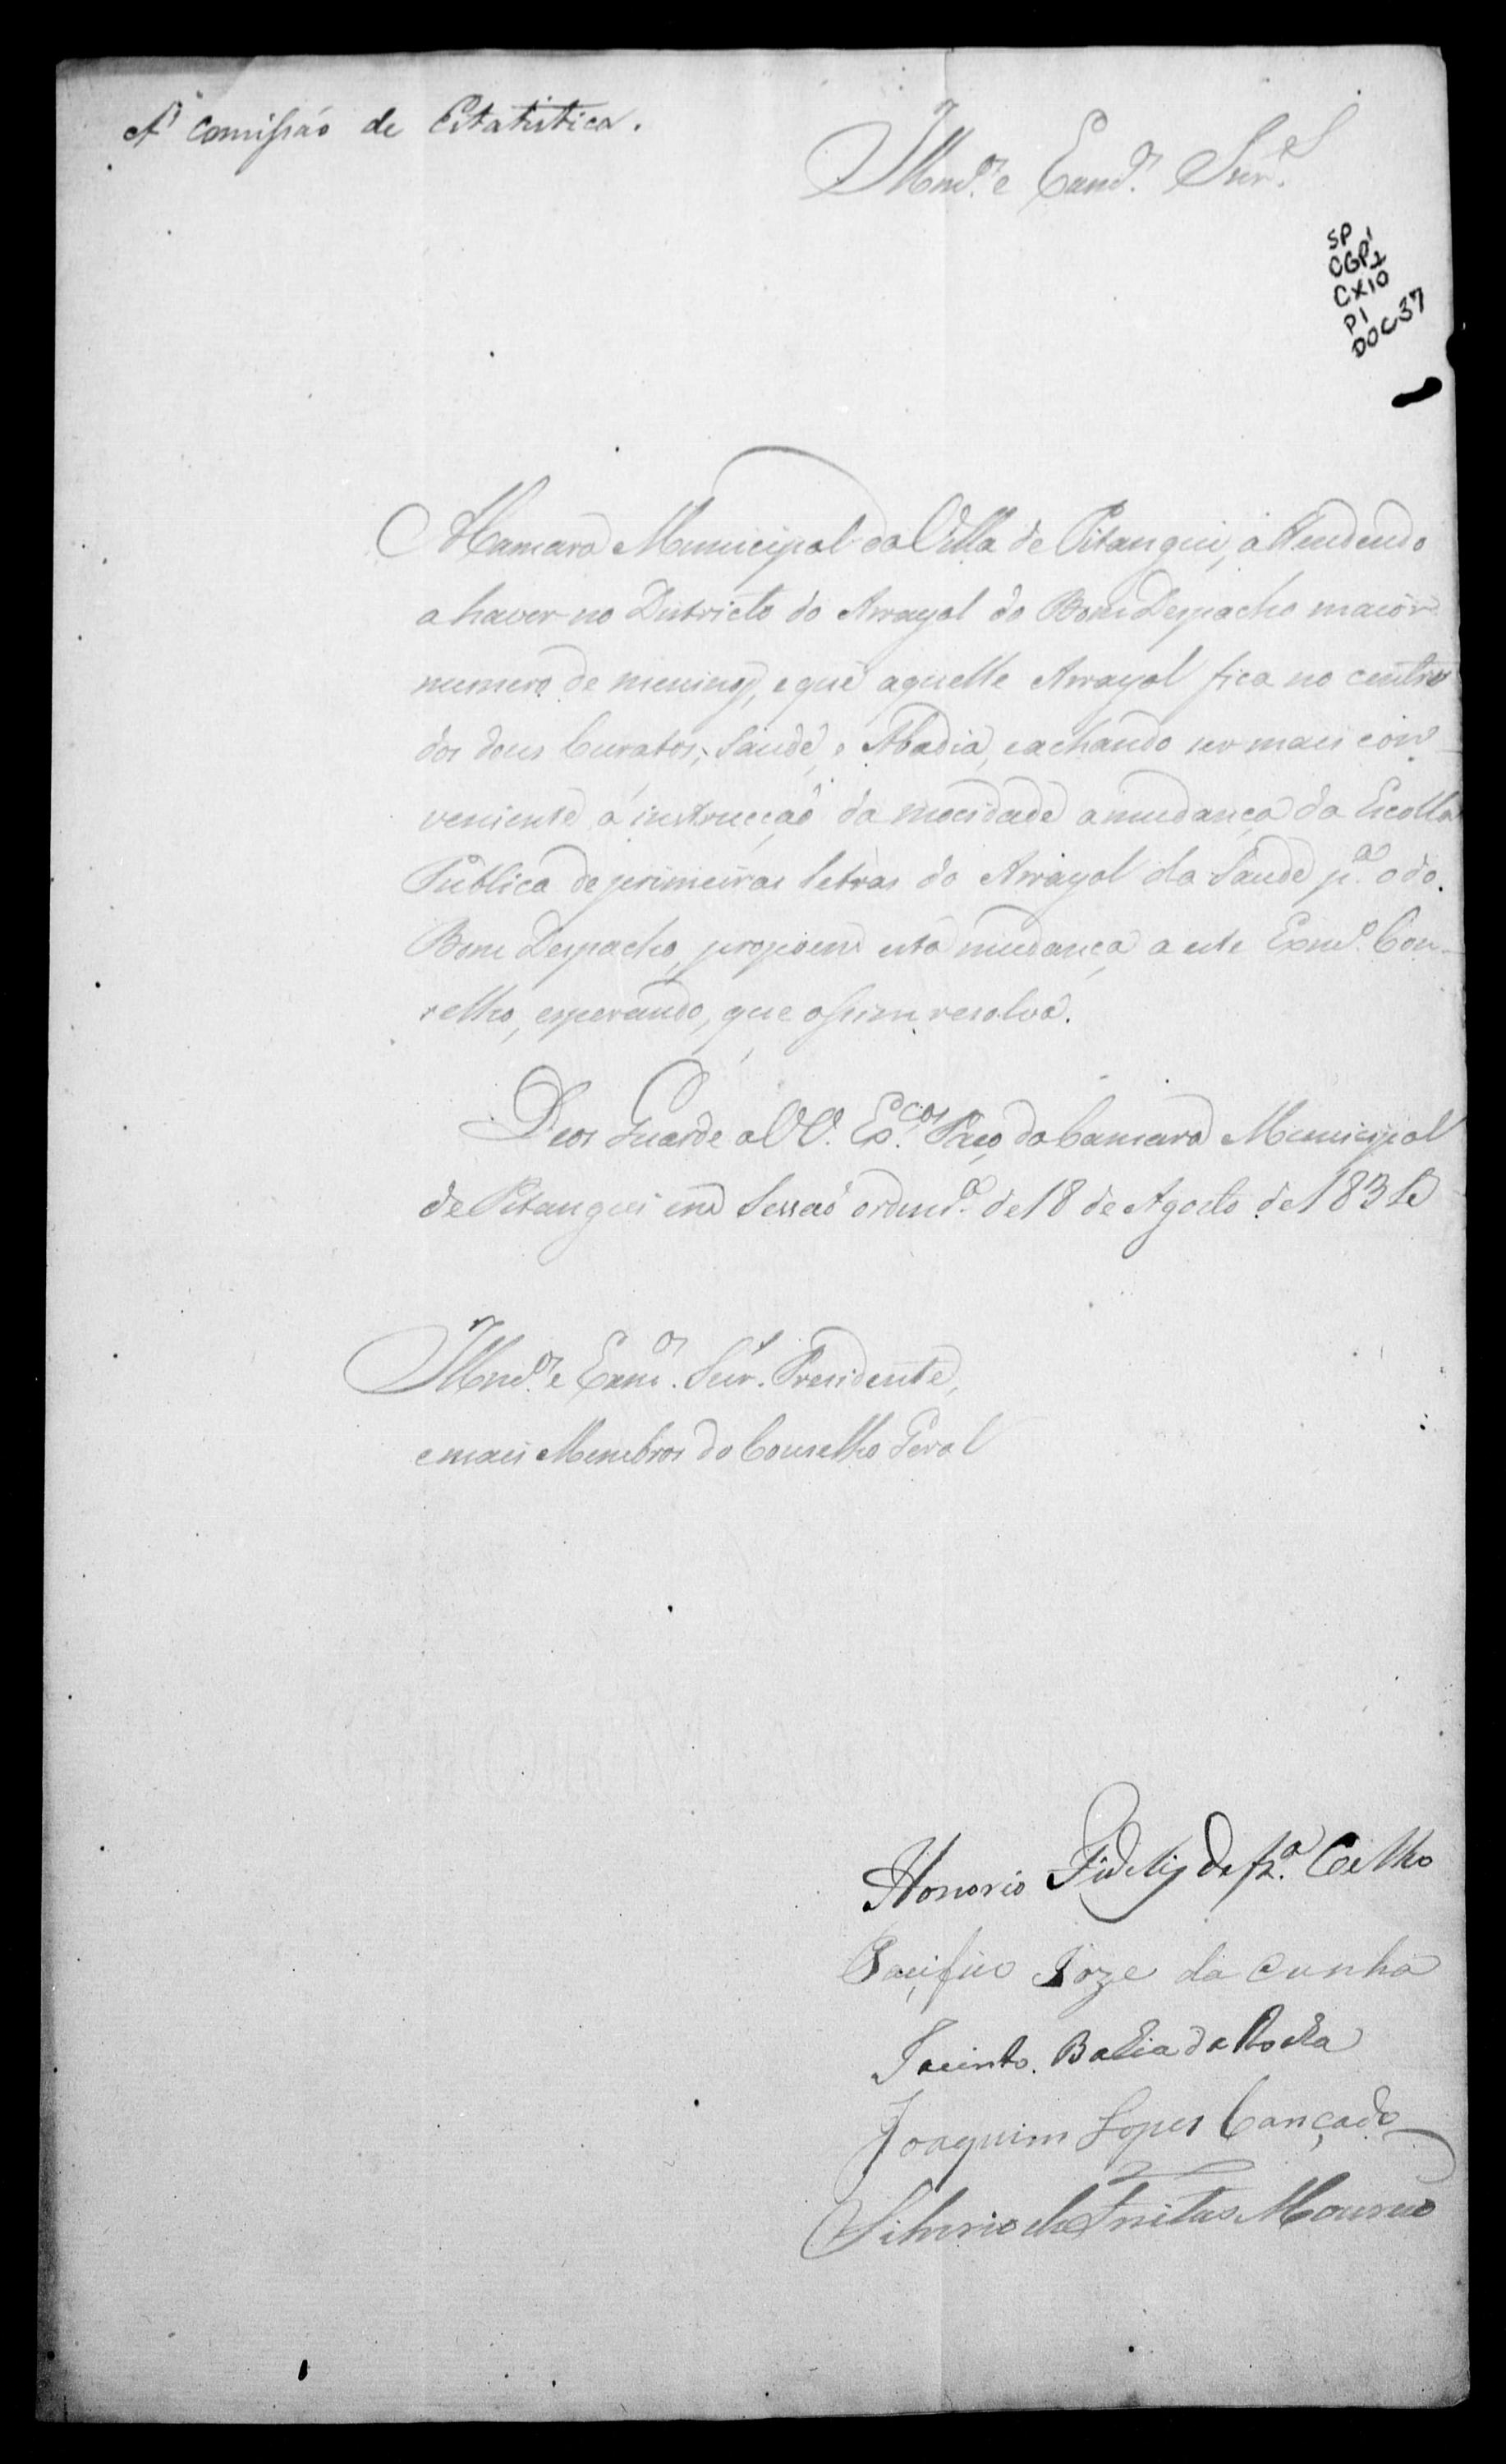 A' Comissão de Estatistica.
Illmos. e Exmos. Snrs.
SP
CGP1
CX10
P1
DOC37
A Camara Municipal da Villa de Pitangui, attendendo
a haver no Districto do Arrayal do Bom Despacho maior
numero de meninos, e que aquelle Arrayal fica no centro
dos dous Curatos, Saude, e Abadia, e achando ser mais con-
veniente á instrucção da mocidade a mudança da Escolla
Publica de primeiras letras do Arrayal da Saude pa. o do
Bom Despacho, propoem esta mudança a este Exmo. Con-
selho, esperando, que assim resolva.
Deos Guarde a VV. Excias. Paço da Camara Municipal
de Pitangui em Sessão ordina. de 18 de Agosto de 183
Illmos. e Exmos. Snrs. Presidente,
e mais Membros do Conselho Geral
Honorio Fidelis de Coelho
Pacifico Joze da Cunha
Jacinto Bahia da Rocha
Joaquim Lopes Cançado
Silverio de Freitas Mourão